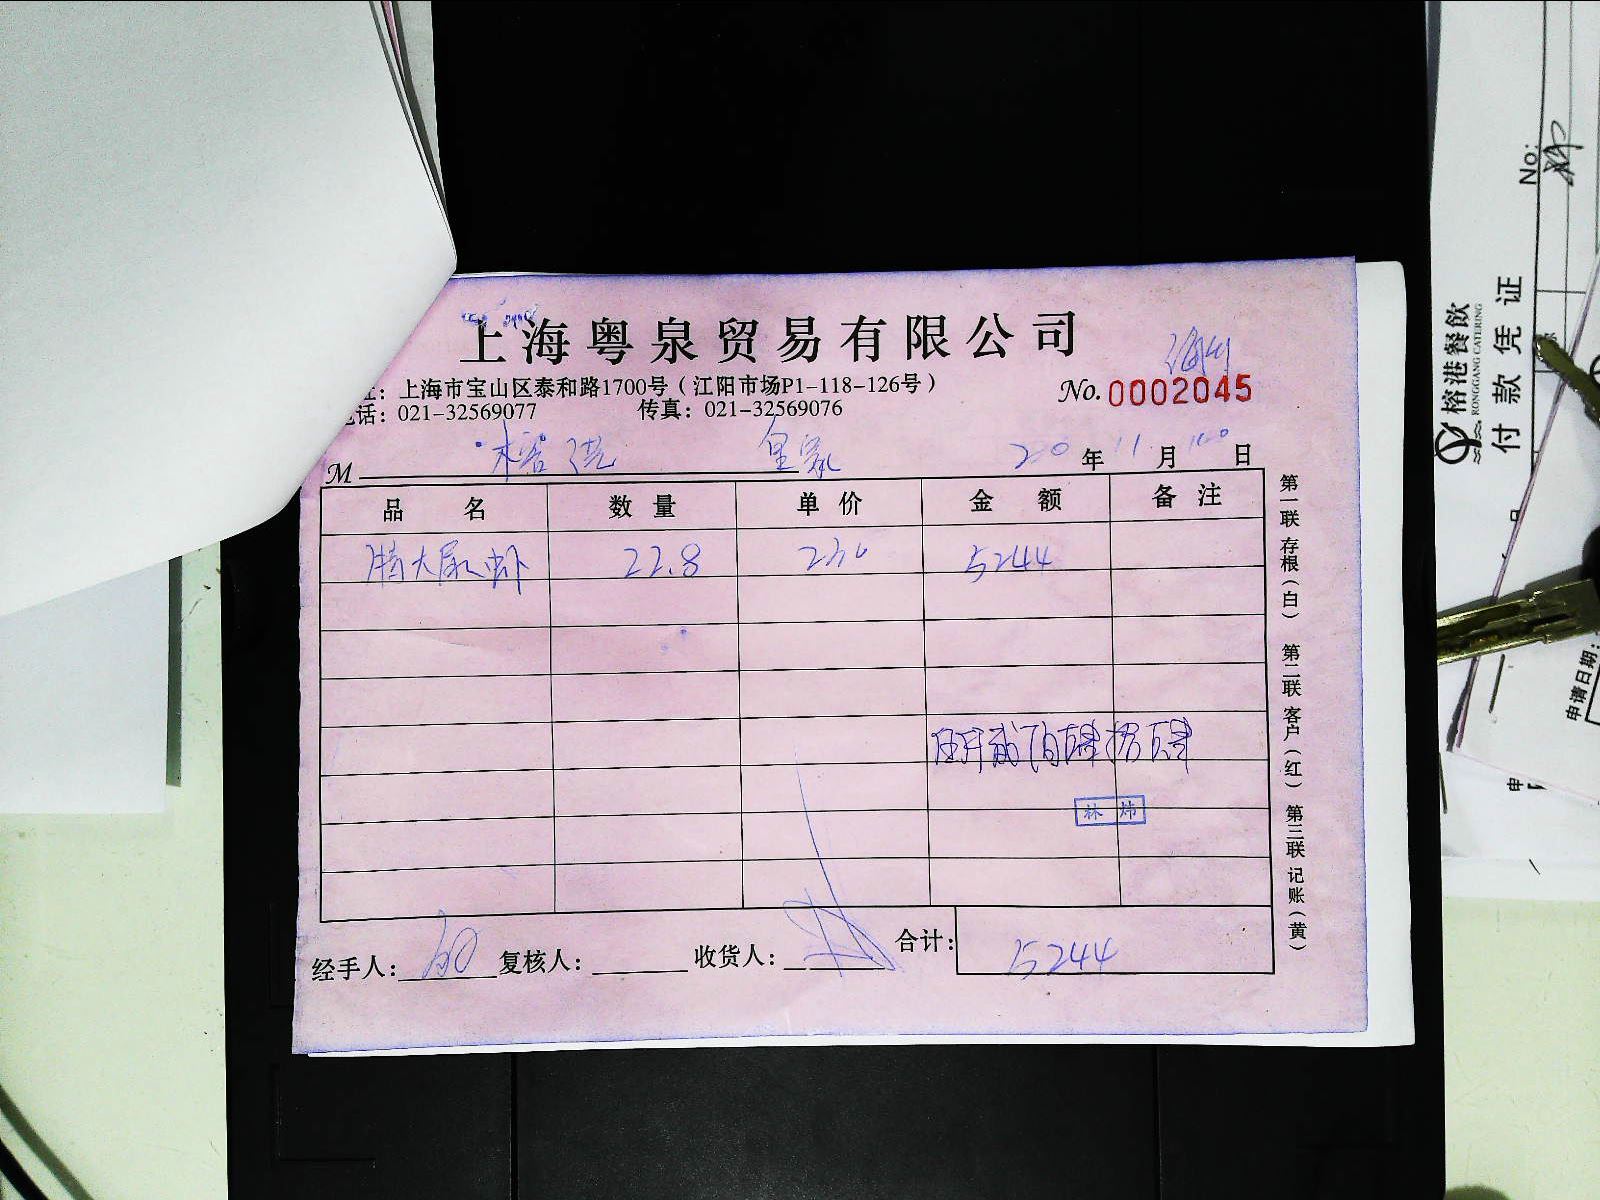 上海粤泉贸易有限公司
址：上海市宝山区泰和路1700号（江阳市场P1-118-126号）
电话：021-32569077 传真：021-32569076
No.0002045
M 榕港 皇家 年11月 日
品名 数量 单价 金额 备注
特大尿虾 22.8 230 5244
伍仟贰佰肆拾肆
林 炜
经手人： 复核人： 收货人： 合计：5244
第一联 存根（白） 第二联 客户（红） 第三联 记账（黄）
榕港餐飲
RONGGANG CATERING
付款凭证
No:
申请日期：